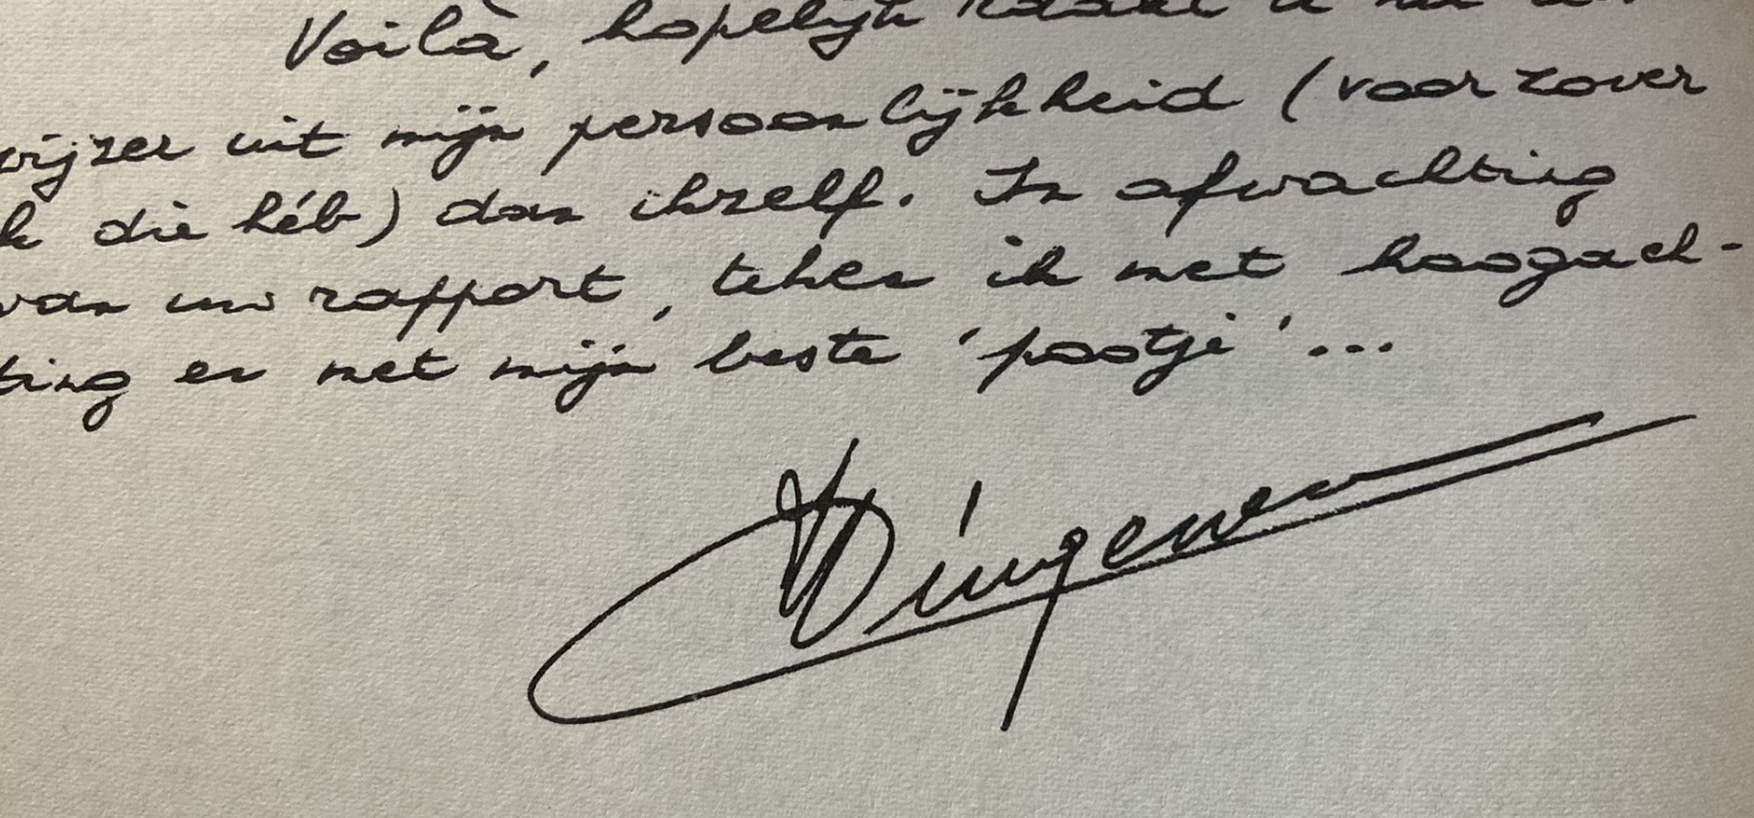 Voilà, hopelijk raakt u nu
wijzer uit mijn persoonlijkheid (voorzover
k die héb) dan ikzelf. In afwachting
van uw rapport, teken ik met hoogach-
ting en met mijn beste 'pootje'...
Dingenen